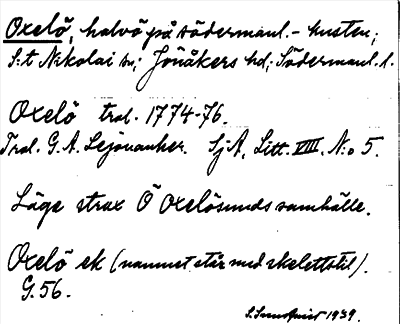 Oxelö, halvö på södermanl.-kusten;
S:t Nikolai sn; Jönåkers hd; Södermanl. l.
Oxelö trol. 1774-76.
Trol. G. A. Lejonanker. SjA, Litt. VIII, N:o 5.
Läge strax Ö Oxelösunds samhälle.
Oxelö ek (namnet står med skelettstil).
G.56.
1939.